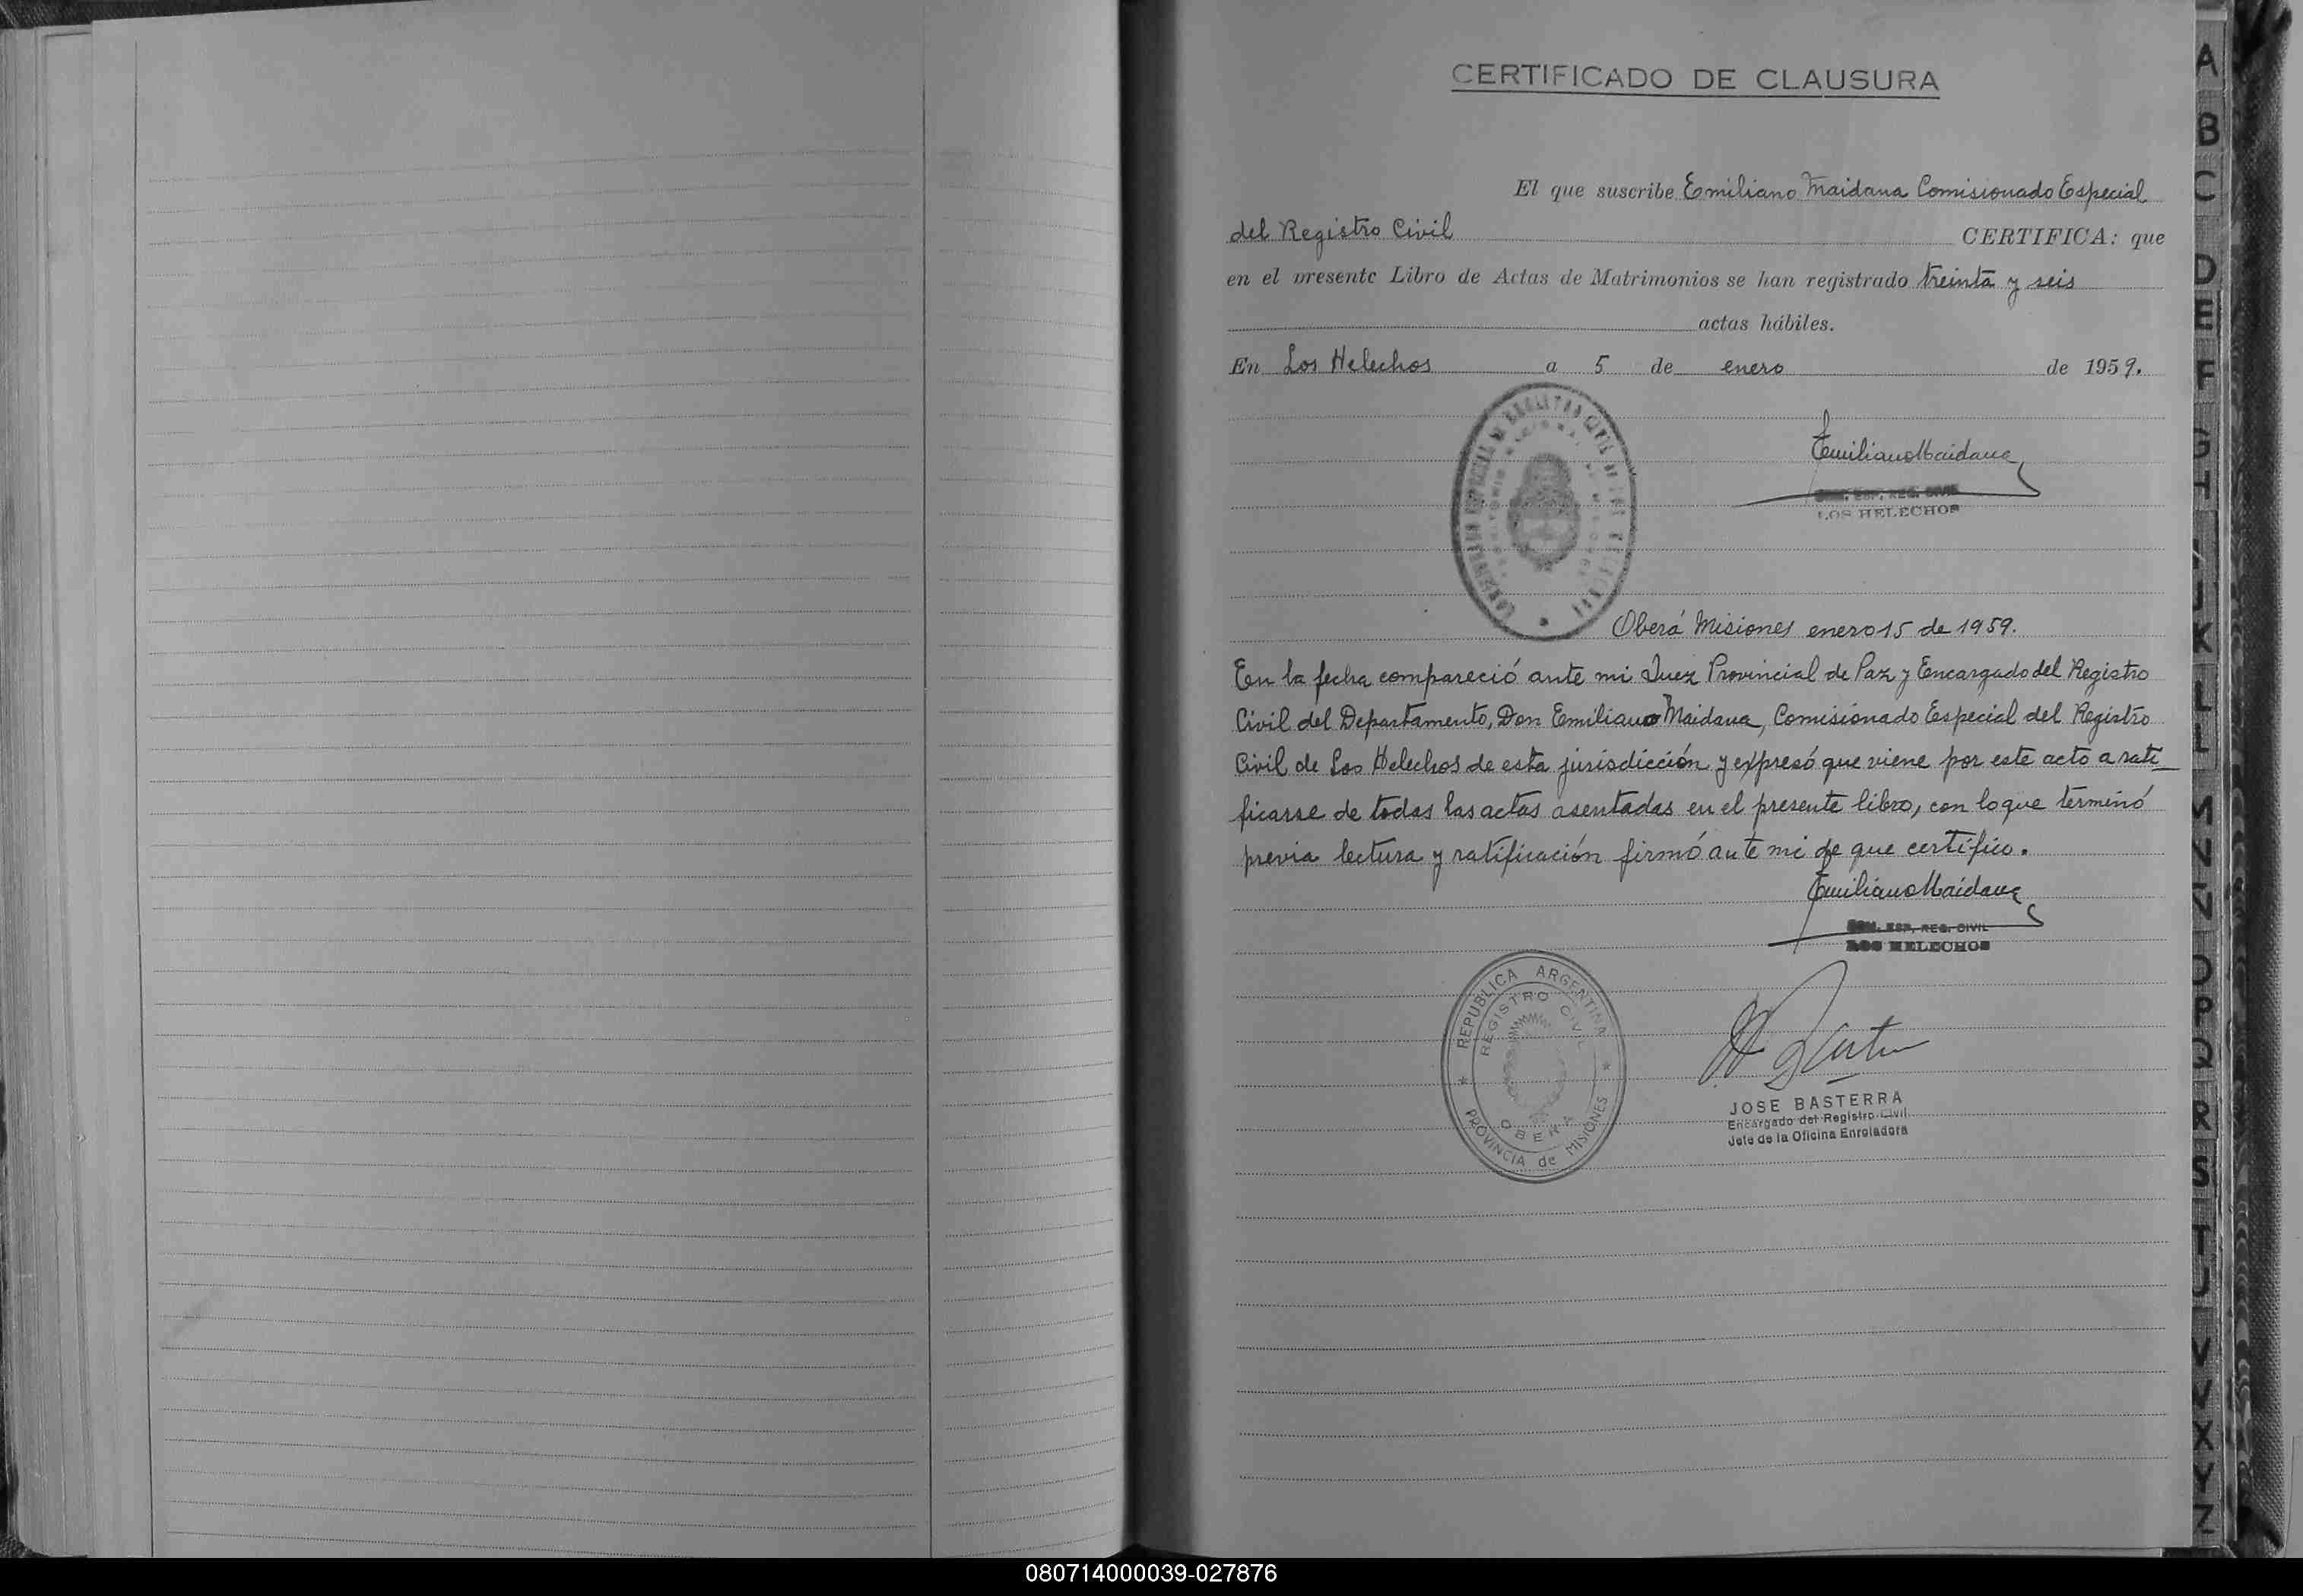 CERTIFICADO DE CLAUSURA
El que suscribe Emiliano Maidana Comisionado Especial
del Registro Civil CERTIFICA: que
en el presente Libro de Actas de Matrimonios se han registrado treinta y seis
actas hábiles.
En Los Helechos a 5 de enero de 1959.
Emiliano Maidana
COM. ESP. REG. CIVIL
LOS HELECHOS
Oberá Misiones enero 15 de 1959.
En la fecha compareció ante mi Juez Provincial de Paz y Encargado del Registro
Civil del Departamento, Don Emiliano Maidana, Comisionado Especial del Registro
Civil de Los Helechos de esta jurisdicción y expresó que viene por este acto a rati_
ficarse de todas las actas asentadas en el presente libro, con lo que terminó
previa lectura y ratificación firmó ante mi de que certifico.
Emiliano Maidana
COM. ESP. REG. CIVIL
LOS HELECHOS
REPUBLICA ARGENTINA
REGISTRO CIVIL
OBERA
PROVINCIA de MISIONES
JOSE BASTERRA
Encargado del Registro Civil
Jefe de la Oficina Enroladora
A
B
C
D
E
F
G
H
I
J
K
L
LL
M
N
Ñ
O
P
Q
R
S
T
U
V
X
Y
Z
080714000039-027876